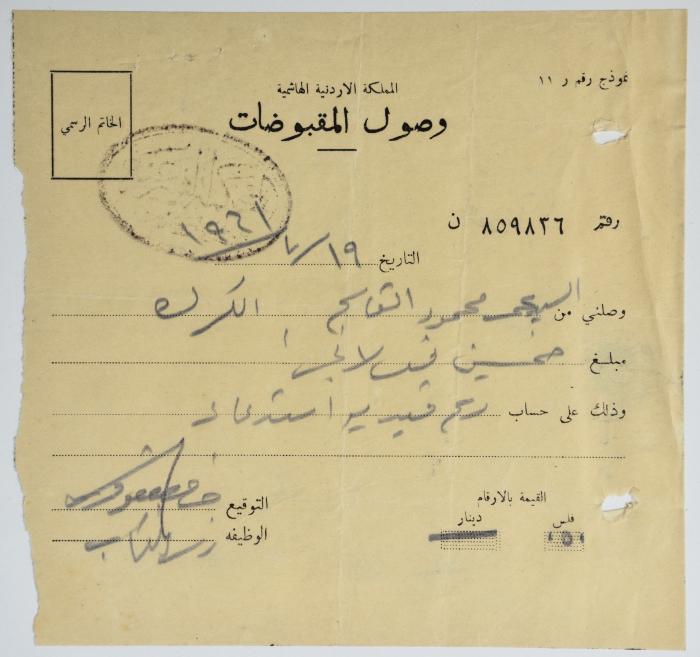 نموذج رقم ر ١١
المملكة الاردنية الهاشمية
وصول المقبوضات
الخاتم الرسمي
رقم ٨٥٩٨٣٦ ن
التاريخ ١٩/٧/١٩٦١
وصلني من السيد محمود القاسم الكرك
مبلغ خمسين فلسا لا غير
وذلك على حساب رسم قيدية استدعاء
القيمة بالارقام
فلس دينار
٥٠
التوقيع
الوظيفه رئيس الكتاب